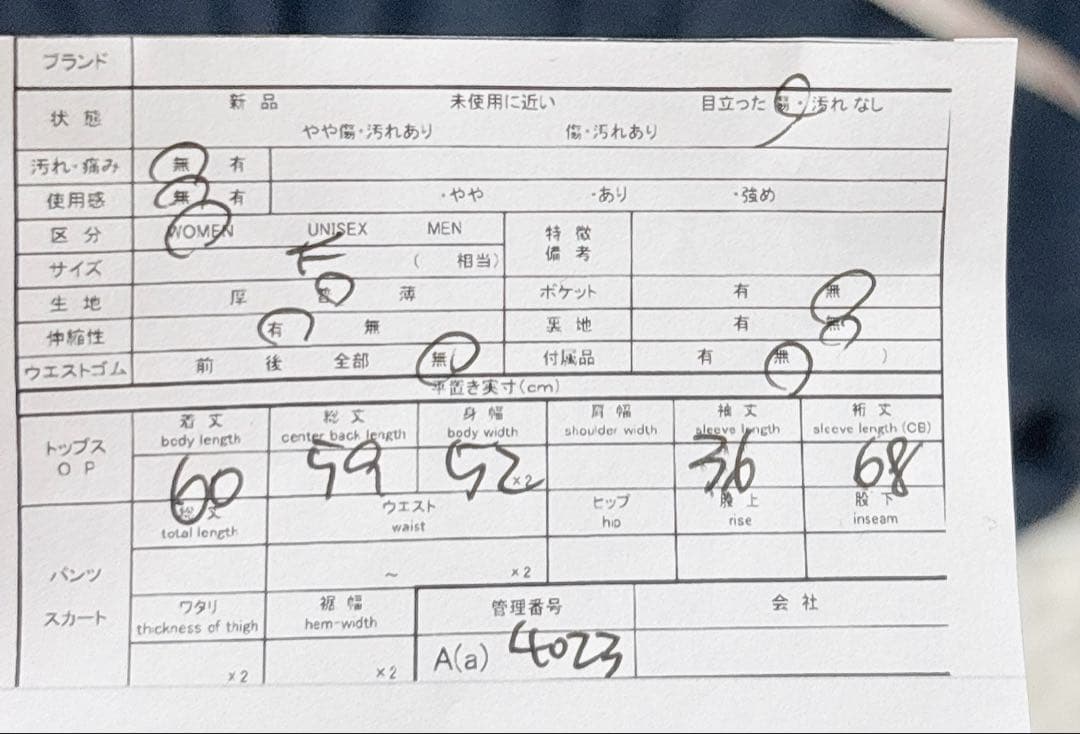 ブランド
状態 新品 未使用に近い 目立った傷・汚れなし
やや傷・汚れあり 傷・汚れあり
汚れ・痛み 無 有
使用感 無 有 ・やや ・あり ・強め
区分 WOMEN UNISEX MEN 特徴備考
サイズ F ( 相当)
生地 厚 普 薄 ポケット 有 無
伸縮性 有 無 裏地 有 無
ウエストゴム 前 後 全部 無 付属品 有 無 )
平置き実寸(cm)
トップス OP 着丈 総丈 身幅 肩幅 袖丈 裄丈
body length center back length body width shoulder width sleeve length sleeve length (CB)
60 59 52 ×2 36 68
パンツ スカート 総丈 ウエスト ヒップ 股上 股下
total length waist hip rise inseam
~ ×2
ワタリ 裾幅 管理番号 会社
thickness of thigh hem-width
×2 ×2 A(a) 4023